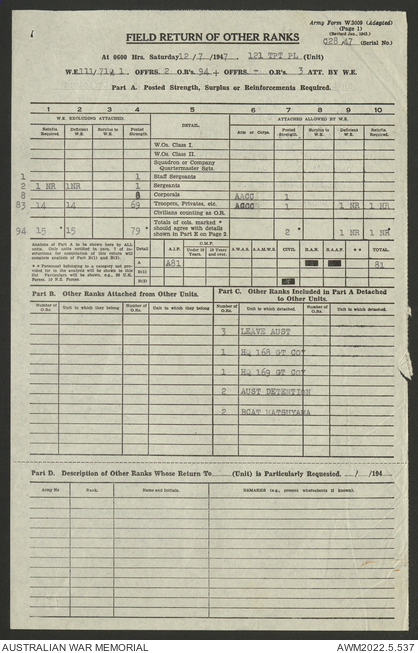 Army Form W3009 (Adapted)
(Page 1)
(Revised Jan., 1943.)
FIELD RETURN OF OTHER RANKS
G28 47 (Serial No.)
At 0600 Hrs. Saturday 12/7/1947. 121 TPT PL (Unit)
W.E. 111/714 1. OFFRS. 2 O.R's. 94 + OFFRS. - O.R's. 3 ATT. BY W.E.
Part A. Posted Strength, Surplus or Reinforcements Required.
1 2 3 4 5 6 7 8 9 10
W.E. EXCLUDING ATTACHED. DETAIL. ATTACHED ALLOWED BY W.E.
Reinfts. Required. Deficient W.E. Surplus to W.E. Posted Strength. Arms or Corps. Posted Strength. Surplus to W.E. Deficient W.E. Reinfts. Required.
W.Os. Class I.
W.Os. Class II.
Squadron or Company Quartermaster Sgts.
1 1 Staff Sergeants
2 1 NR 1NR 1 Sergeants
8 8 Corporals AACC 1
83 14 14 69 Troopers, Privates, etc. ACCC 1 1 NR 1 NR
Civilians counting as O.R.
94 15 * 15 * 79 * Totals of cols. marked * should agree with details shown in Part E on Page 2. 2 * 1 NR 1 NR*
Analysis of Part A to be shown here by ALL units. Detail A.I.F. C.M.F. Under 18 Years. 18 Years and over. A.W.A.S. A.A.M.W.S. CIVIL. R.A.N. R.A.A.F. * * TOTAL.
A A81 81
B(1)
B(2)
Part B. Other Ranks Attached from Other Units. Part C. Other Ranks Included in Part A Detached to Other Units.
Number of O.Rs. Unit to which they belong Number of O.Rs. Unit to which they belong Number of O.Rs. Unit to which detached. Number of O.Rs. Unit to which detached.
3 LEAVE AUST
1 HQ 168 GT COY
1 HQ 169 GT COY
2 AUST DETENTION
2 BCAT MATSUYAMA
Part D. Description of Other Ranks Whose Return To (Unit) is Particularly Requested. / /194
Army No. Rank. Name and Initials. REMARKS (e.g., present whereabouts if known).
AUSTRALIAN WAR MEMORIAL AWM2022.5.537